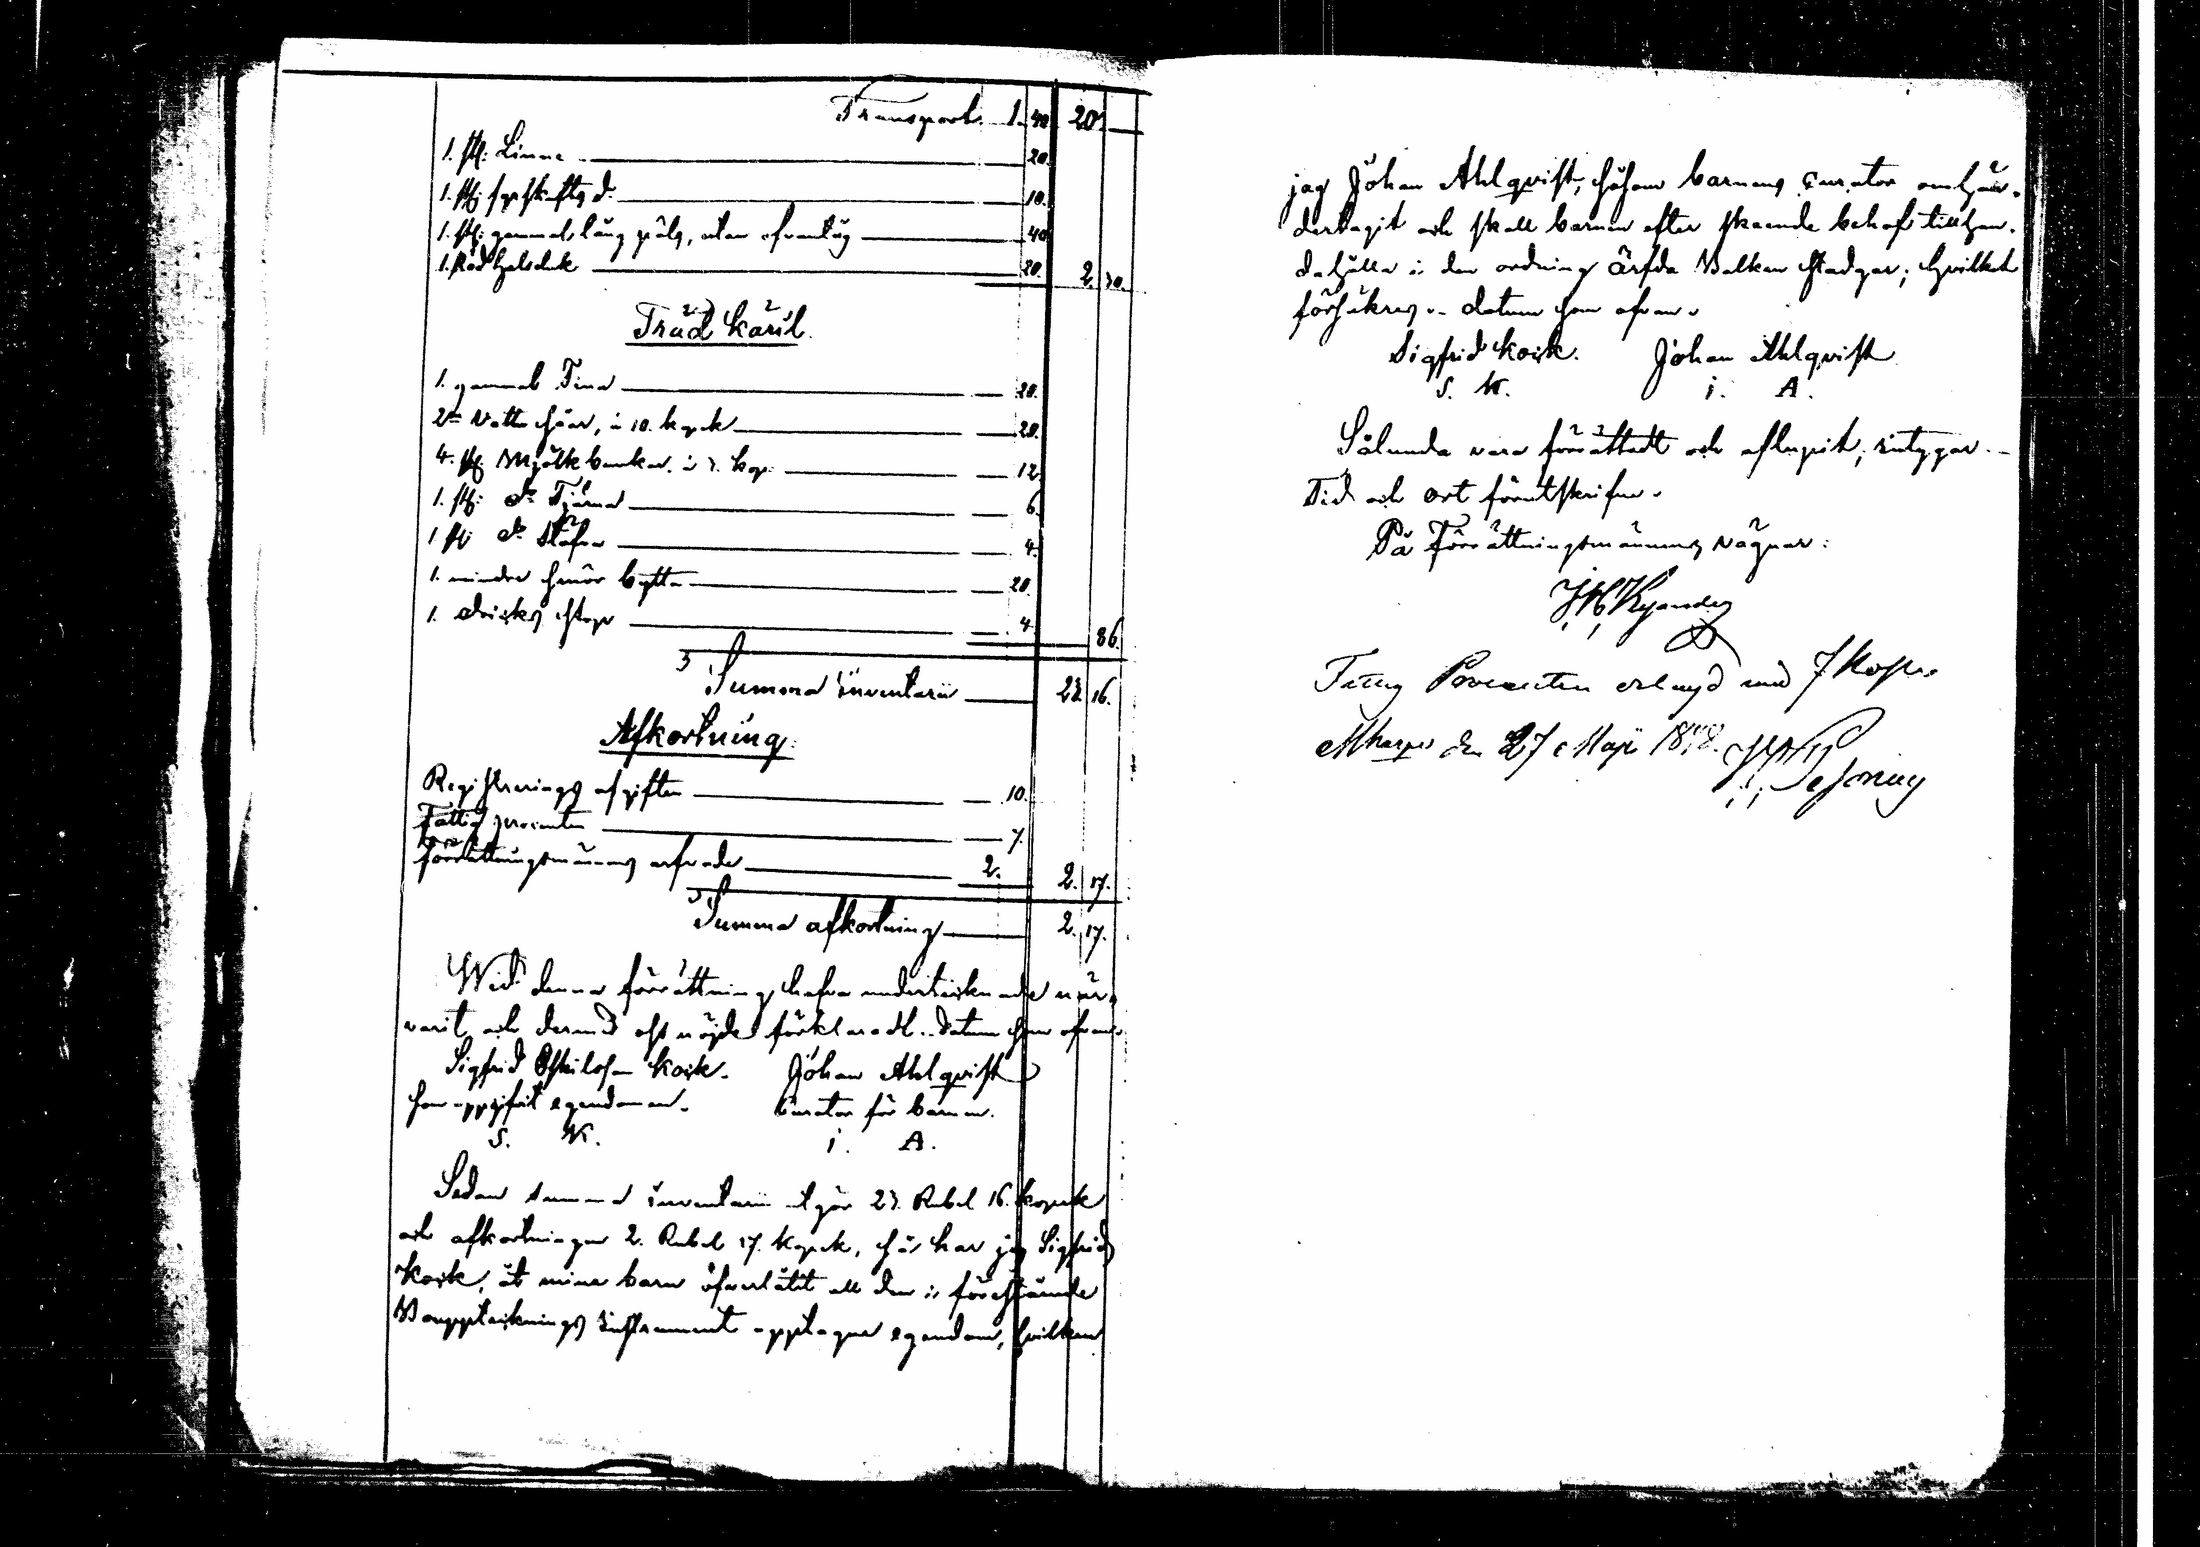 Transport 1. 40 20. —
1. st: Linne — 20.
1. st: fyrskafts d:o — 10.
1. st: gammal lång päls, utan ofvantyg — 40
1. Röd halsduk — 20. 2. 30.
Träd Käril.
1. gammal Tina — 20.
2:ne Vattu såar, à 10. kopek — 20.
4. st: Mjölk bunkar à 3. kop: — 12
1. st: d:o Tjärna — 6.
1 st: d:o Stäfva — 4.
1. mindre smör bytta — 20
1. dricks stop — 4. 86.
Summa Inventarii — 23. 16.
Afkortning.
Registrerings afgiften — 10.
Fattig procenten — 7.
förrättningsmännens arfvode — 2. 2. 17.
Summa afkortning — 2. 17.
Wid denna förrättning hafva undertecknade när-
varit och dermed oss nöjde förklaradt. Datum som ofvan.
Sigfrid Eskilsson Koik. Johan Ahlqvist
som uppgifvit egendomen. Curator för barnen.
S. K. i. A.
Sedan summa Inventarii utgör 23. Rubel 16. kopek
och afkortningen 2. Rubel 17. kopek, så har jag Sigfrid
Koik, åt mina barn öfverlåtit all den i förestående
Bouppteknings Instrument upptagne egendom, hvilken
jag Johan Ahlqvist, såsom barnens Curator omhän-
dertagit och skall barnen efter skeende behof tillhan-
dahålla i den ordning Ärfda Balken stadgar; hvilket
försäkras. datum som ofvan.
Sigfrid Koik. Johan Ahlqvist
S. K. i. A.
Sålunda vara förrättadt och aflupit, intygar.
Tid och ort förutskrifne.
På Förrättningsmännens vägnar:
Fattig Procenten erlagd med 7 Kop:
den 27 Maji 1848.